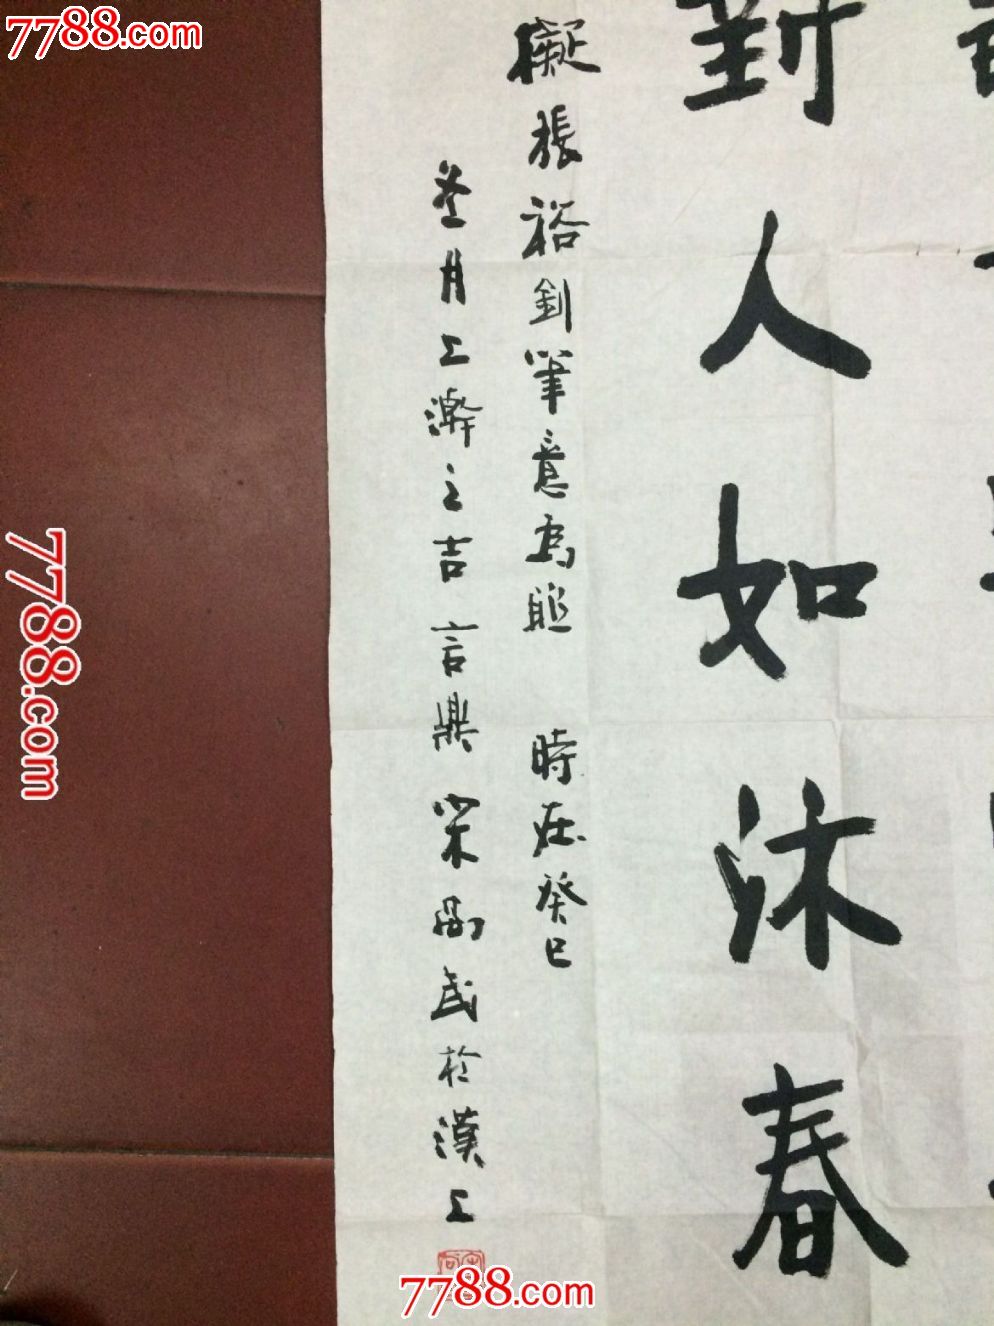 對人如沐春
擬張裕釗筆意為聯 時在癸巳
冬月上澣之吉 言鼎 宋 於漢上
7788.com
7788.com
7788.com